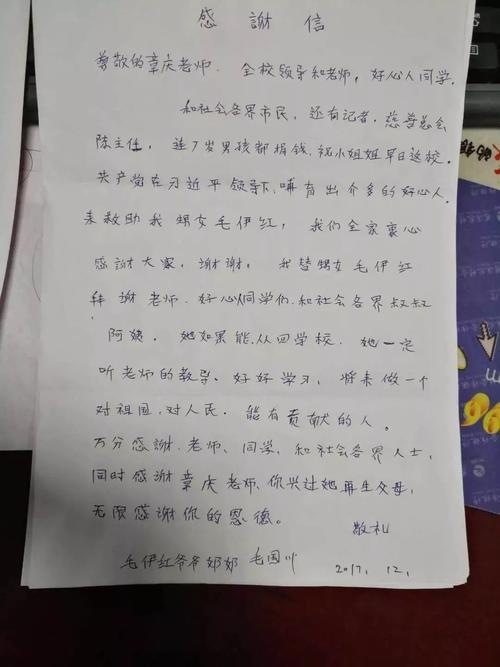 感謝信
尊敬的章庆老师. 全校领导和老师, 好心人同学.
和社会各界市民, 还有记者. 慈善总会
陈主任, 连7岁男孩都捐钱. 祝小姐姐早日返校.
共产党在习近平领导下、哺育出介多的好心人.
来救助我 甥女毛伊红, 我们全家衷心
感謝大家, 谢谢, 我替甥女毛伊红
拜谢老师. 好心同学们. 和社会各界叔叔
阿姨. 她如果能.从回学校. 她一定
听老师的教导. 好好学习, 将来做一个
对祖国.对人民. 能有贡献的人。
万分感謝.老师、同学. 和社会各界人士,
同时感谢章庆老师、你兴过她再生父母,
无限感谢你的恩德。
敬礼
毛伊红爷爷奶奶 毛国
2017. 12.